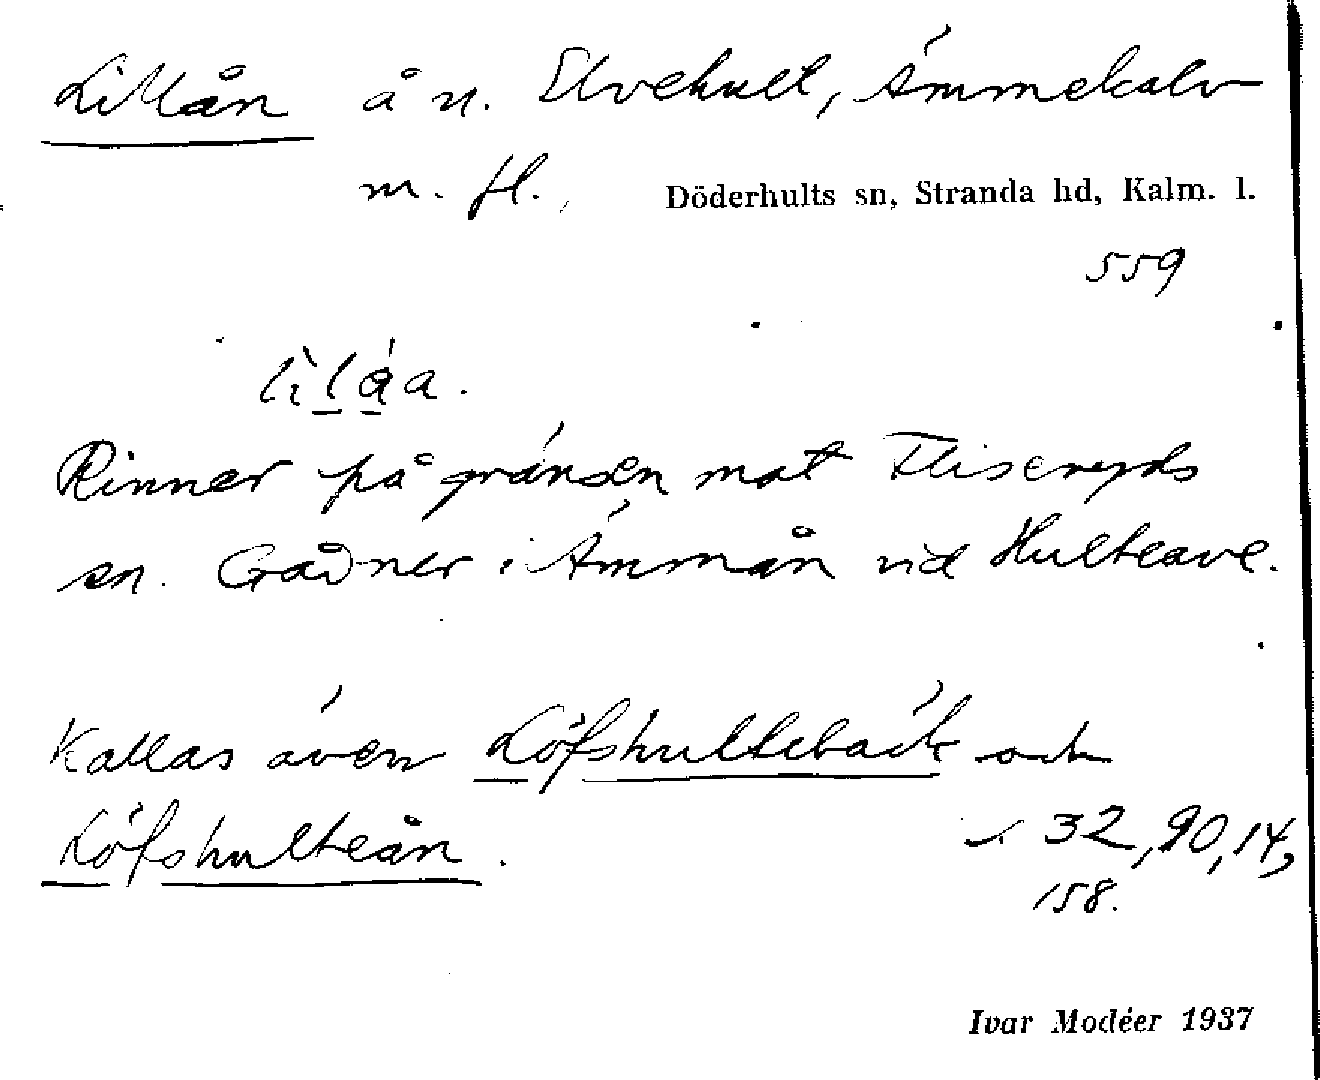 Lillån å n. Elvehult, Ämmekalv
m. fl., Döderhults sn, Stranda hd, Kalm. l.
559
Rinner på gränsen mot Fliseryds
sn. Går ner i Ämmån vid Hulteave.
Kallas även Löfshultebäck och
Löfshulteån. 32, 90, 14,
158.
Ivar Modéer 1937